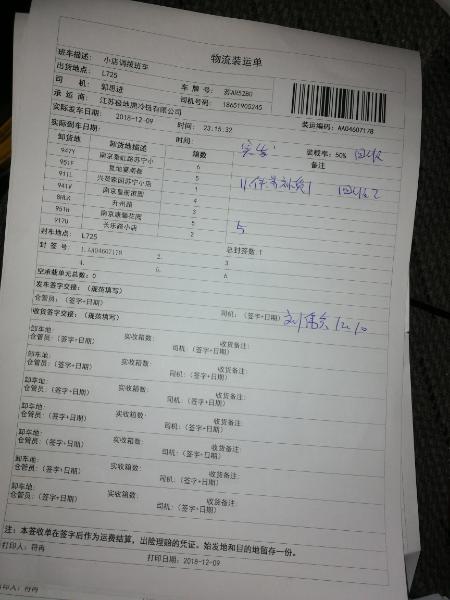 物流装运单
班车描述: 小店调拨班车
出货地点: L725
司 机: 郭思进 车 牌 号: 苏AR52B0
承 运 商: 江苏极地熊冷链有限公司 司机号码: 18651905245
实际发车日期: 2018-12-09 时间: 23:15:32 装运编码: AA04607178
实际到车日期: 时间: 装载率: 50% 回收
卸货地 卸货地描述 箱数 备注
947Y 南京 苏宁小 6
951F 5
911L 苏宁小店 1 回收
941W 南京 4
8HLX 升州路 3
951H 南京 花园 5
917U 长乐路小店 2
封车地点: L725 总封签数: 1
封 签 号: 1.AA04607178 2. 3.
4. 5. 6.
空承载单元总数: 0
发车签字交接: (规范填写)
仓管员: (签字+日期) 司机: (签字+日期)
收货签字交接: (规范填写)
卸车地: 实收箱数: 收货备注:
仓管员: (签字+日期) 司机: (签字+日期)
卸车地: 实收箱数: 收货备注:
仓管员: (签字+日期) 司机: (签字+日期)
卸车地: 实收箱数: 收货备注:
仓管员: (签字+日期) 司机: (签字+日期)
卸车地: 实收箱数: 收货备注:
仓管员: (签字+日期) 司机: (签字+日期)
卸车地: 实收箱数: 收货备注:
仓管员: (签字+日期) 司机: (签字+日期)
卸车地: 实收箱数: 收货备注:
仓管员: (签字+日期) 司机: (签字+日期)
卸车地: 实收箱数: 收货备注:
仓管员: (签字+日期) 司机: (签字+日期)
注: 本签收单在签字后作为运费结算, 出险理赔的凭证。始发地和目的地留存一份。
打印人: 符冉 打印日期: 2018-12-09